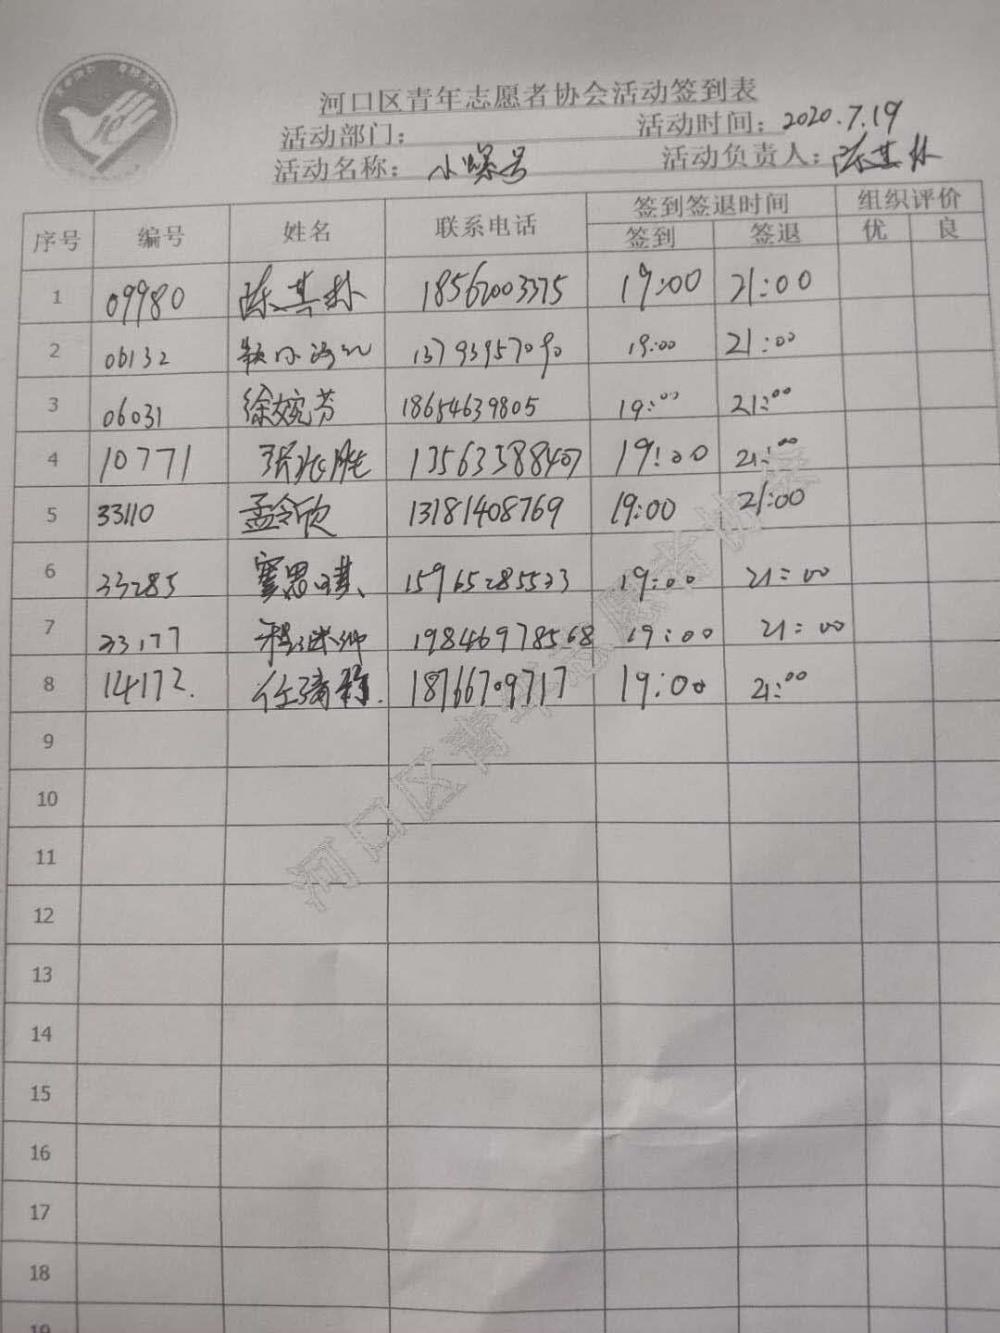 河口区青年志愿者协会活动签到表
活动部门： 活动时间：2020.7.19
活动名称：小螺号 活动负责人：陈其朴
序号 编号 姓名 联系电话 签到签退时间 组织评价
签到 签退 优 良
1 09980 陈其朴 18562003375 19:00 21:00
2 06132 13793957090 19:00 21:00
3 06031 徐婉芳 18654639805 19:00 21:00
4 10771 张兆胜 13563588407 19:00 21:00
5 33110 孟令欣 13181408769 19:00 21:00
6 33285 窦思琪 15965285533 19:00 21:00
7 33177 19846978568 19:00 21:00
8 14172. 任 18766709717 19:00 21:00
9
10
11
12
13
14
15
16
17
18
19
河口区青年志愿者协会